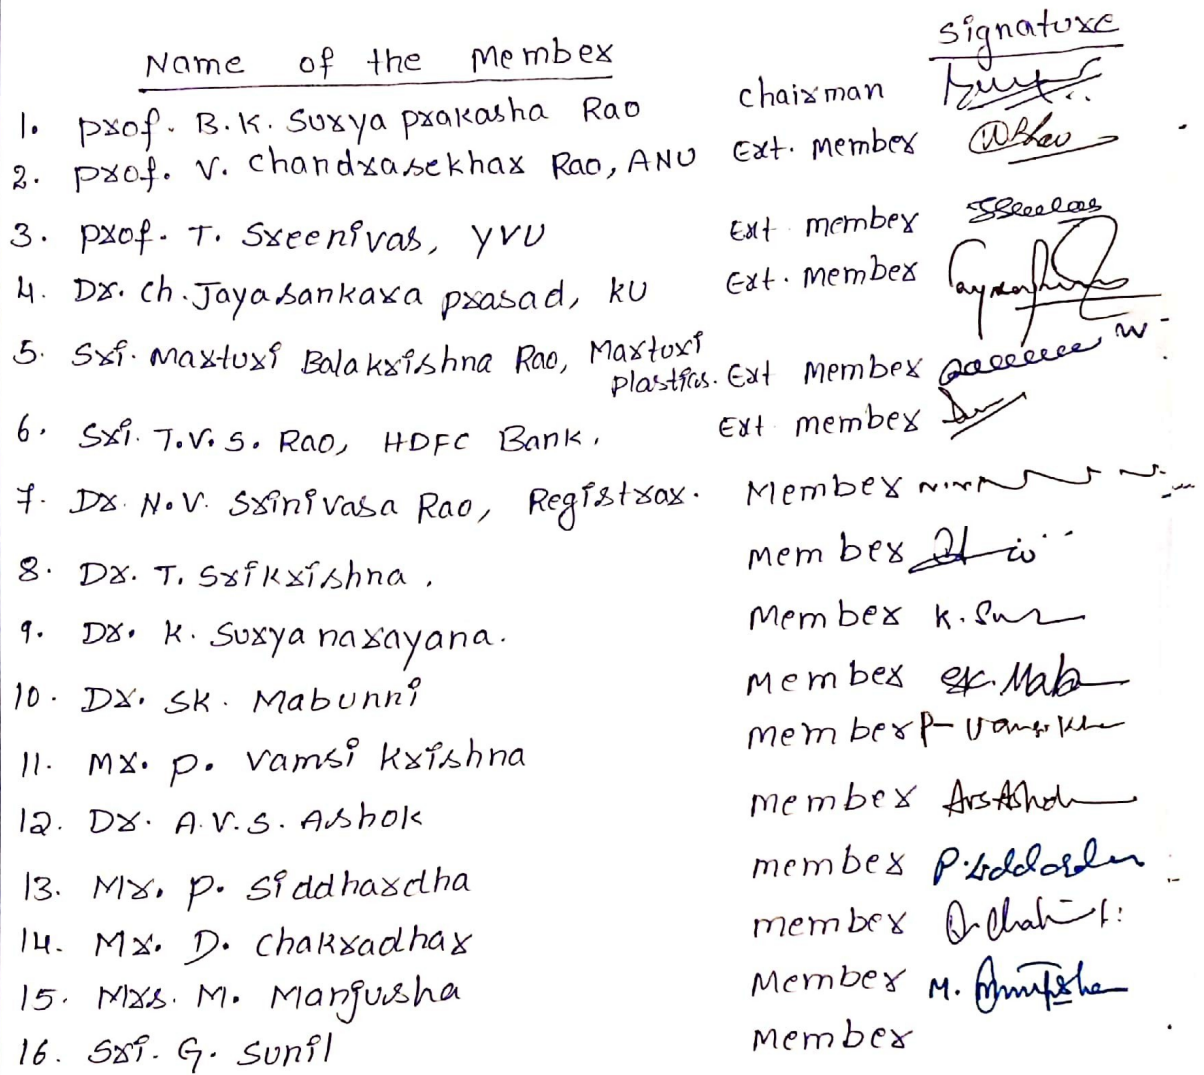 Signature
Name of the Member
1. Prof. B.K. Surya Prakasha Rao Chairman
2. Prof. V. Chandrasekhar Rao, ANU Ext. Member
3. Prof. T. Sreenivas, YVU Ext member
4. Dr. Ch. Jayasankara Prasad, KU Ext. Member
5. Sri. Marturi Balakrishna Rao, Marturi
Plastics. Ext Member
6. Sri. T.V.S. Rao, HDFC Bank. Ext member
7. Dr. N.V. Srinivasa Rao, Registrar. Member
8. Dr. T. Srikrishna. member
9. Dr. K. Surya narayana. Member K. Sur
10. Dr. SK. Mabunni Member SK. Mab
11. Mr. P. Vamsi Krishna member P Vamsi
12. Dr. A.V.S. Ashok member AVS Ashok
13. Mr. P. Siddhardha member P. Siddardha
14. Mr. D. Chakradhar member
15. Mrs. M. Manjusha Member M.
16. Sri. G. Sunil Member